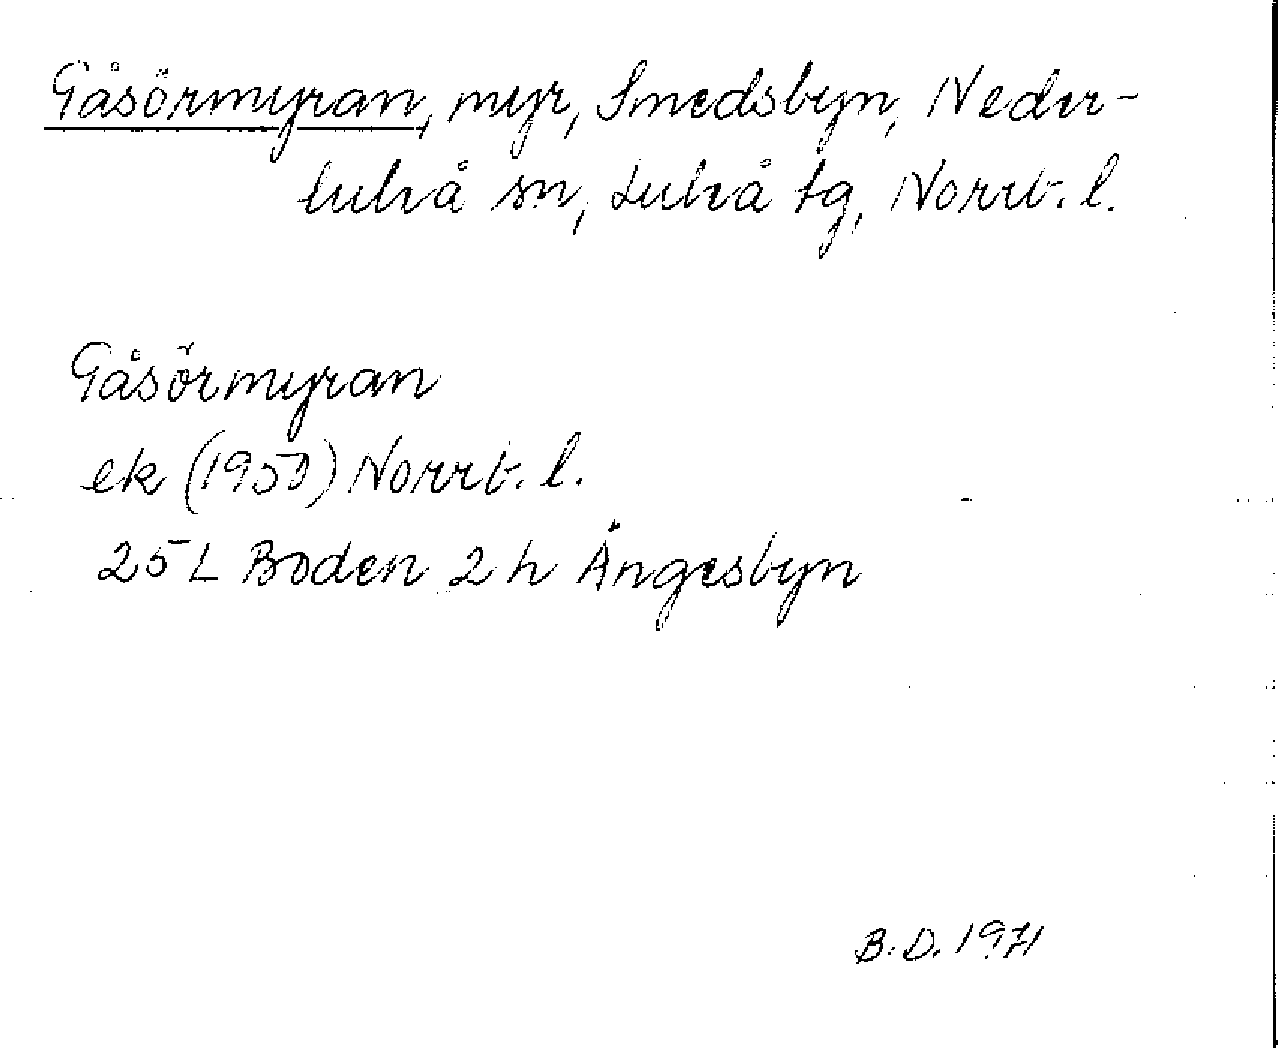 Gåsörmyran, myr, Smedsbyn, Neder-
luleå sn, Luleå tg, Norrb. l.
Gåsörmyran
ek (1950) Norrb. l.
25 L Boden 2 h Ängesbyn
B. D. 1971